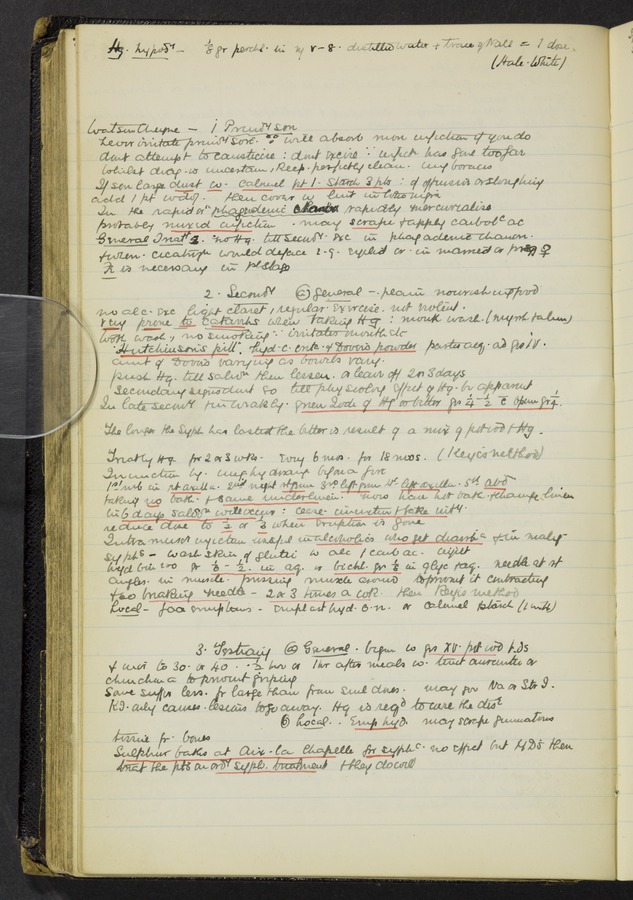 Hg. hypod^y — 1/8 gr perchl. in ♏ v–8. distilled water + trace of NaCl = 1 dose.
(Hale-White)
Watson Cheyne — 1 Prim^y son
never irritate prim^y sore. will absorb more infection if you do
dont attempt to causticise : dont excise ∵ infect has gone too far
Whilst diag. is uncertain, keep perfectly clean. ung boracis
If son large dust w. calomel pt 1. Starch 3 pts : if offensive or sloughing
add 1 pt iodof. then cover w lint in lotio nigra
In the rapid or phagedenic rapidly mercurialise
probably mixed infection. may scrape + apply carbol^c ac
General Treat^t. no Hg. till second^y exc in phagadenic chancre.
+ when cicatrix would deface e.g. eyelid or in married or preg ♀
It is necessary in 1st stage
2. Second^y @ General — plain nourishing food
no alc. exc light claret, regular Exercise. not violent.
very prone to catarrhs when taking Hg : mouth wash (myrrh + alum)
with wash, no smoking ∵ irritates mouth etc
Hutchinson's pill. Hyd. c. cret. & Dovers powder partes aeq. ad gr iv.
amt of Dovers varying as bowels vary.
push Hg. till saliv^n then lessen. or leave off 2 or 3 days
Secondary signs dont go till physiolog effect of Hg. be apparent
In late second^y + in weakly. green Iode of Hg or better gr 1/4 – 1/2 c̄ opium gr 1/4.
The longer the Syph has lasted the better is result of a mix of pot iod + Hg.
Treat by Hg for 2 or 3 wks. Every 6 mos. for 18 mos. (Keyes method)
Inunction by. ung hydrarg before a fire
1st rub in rt axilla. 2nd night rt groin 3rd left groin 4th left axilla. 5th abd^o
taking no bath. + same underlinen. now have hot bath + change linen
in 6 days saliv^n will occur : cease inunction + take
reduce dose to 1/2 or 1/3 when eruption is gone
Intra muscr injection useful in alcoholics who get diarrh^a + in malig^t
syph^s — wash skin of glutei w alc / carb ac. inject
hyd bin iod gr 1/8 – 1/2. in aq. or bichl. gr 1/8 in glyc + aq. needle at rt
angles. in muscle. pressing muscle around to prevent it contracting
+ so breaking needle — 2 or 3 times a wk. then Keyes method
Local — for eruptions — emplast hyd. o.n. or calomel + starch (1 with)
3. Tertiary @ General. begin w grs XV. pot iod t.ds
+ incr to 30. or 40. 1/2 hr or 1 hr after meals w. tinct aurantii or
chinchona to prevent griping
Some suffer less. fr large than from small doses. may give Na or Str I.
KI. only causes lesions to go away. Hg is req^d to cure the dis^e
(b) Local. Emp hyd. may scrape gummatous
tissue fr. bones
Sulphur baths at Aix-la Chapelle for syph^s. no effect but H2S then
treat the pts on ord^y syph. treatment + they do well